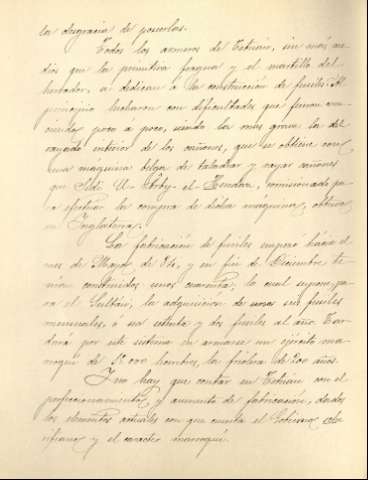 la desgracia de poseerlas.
Todos los armeros de Tetuán, sin más me-
dios que la primitiva fragua y el martillo del
herrador, se dedican á la construcción de fusiles. Al
principio lucharon con dificultades que fueron ven-
ciendo poco á poco, siendo la mas grave la del
rayado interior de los cañones, que se obtiene con
una máquina belga de taladrar y rayar cañones
que Sidi el-Arby-el- comisionado pa-
ra efectuar la compra de dicha maquina, obtuvo
en Inglaterra.
La fabricación de fusiles empezó hácia el
mes de Mayo de 84, y en fin de Diciembre te-
nian construidos unos cuarenta, lo cual supone pa-
ra el Sultán, la adquisicion de unos seis fusiles
mensuales, ó sea setenta y dos fusiles al año. Tar-
dará por este sistema en armarse un ejército ma-
rroquí de 000 hombres, la friolera de 200 años.
Y no hay que contar en Tetuán con el
perfeccionamiento y aumento de fabricacion, dados
los elementos actuales con que cuenta el Gobierno che-
rifiano y el carácter marroquí.